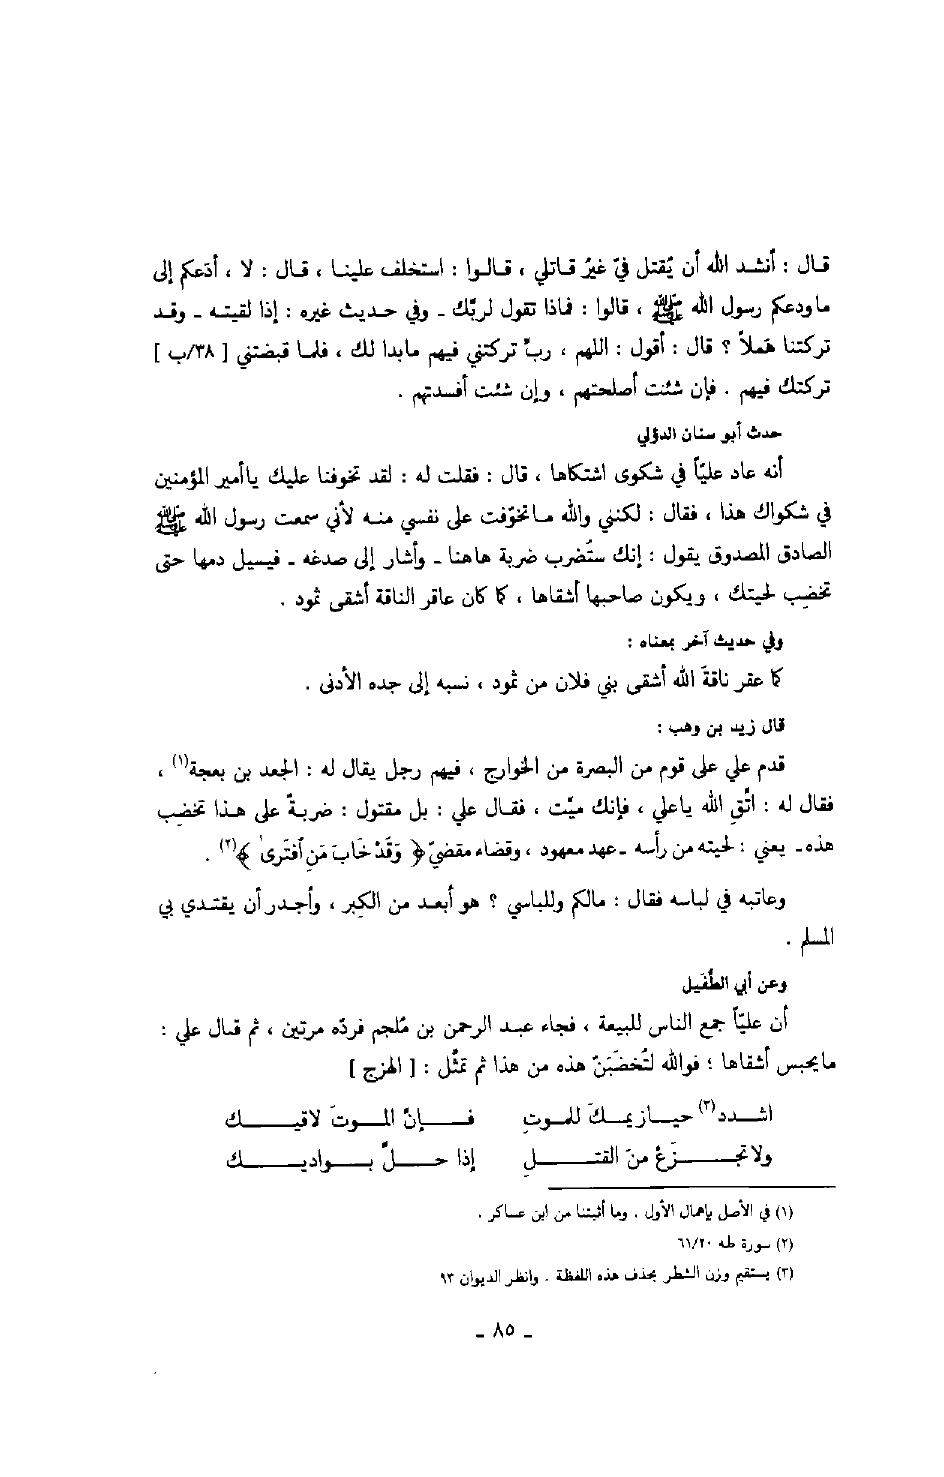 قال : أنشد الله أن يُقتل فيّ غيرُ قاتلي ، قالوا : استخلف علينا ، قال : لا ، أدَعكم إلى
ماودعكم رسول الله ﷺ ، قالوا : فماذا تقول لربّك ـ وفي حديث غيره : إذا لقيته ـ وقد
تركتنا هَملاً ؟ قال : أقول : اللهم ، ربّ تركتني فيهم مابدا لك ، فلما قبضتني [ ٣٨/ب ]
تركتك فيهم . فإن شئت أصلحتهم ، وإن شئت أفسدتهم .
حدث أبو سنان الدؤلي
أنه عاد عليّاً في شكوى اشتكاها ، قال : فقلت له : لقد تخوفنا عليك ياأمير المؤمنين
في شكواك هذا ، فقال : لكنني والله ماتخوّفت على نفسي منه لأني سمعت رسول الله ﷺ
الصادق المصدوق يقول : إنك ستُضرب ضربة هاهنا ـ وأشار إلى صدغه ـ فيسيل دمها حتى
تخضِب لحيتك ، ويكون صاحبها أشقاها ، كما كان عاقر الناقة أشقى ثمود .
وفي حديث آخر بمعناه :
كما عقر ناقةَ الله أشقى بني فلان من ثمود ، نسبه إلى جده الأدنى .
قال زيد بن وهب :
قدم علي على قوم من البصرة من الخوارج ، فيهم رجل يقال له : الجعد بن بعجة(١) ،
فقال له : اتَّقِ الله ياعلي ، فإنك ميّت ، فقال علي : بل مقتول : ضربةٌ على هذا تخضِب
هذه ـ يعني : لحيته من رأسه ـ عهد معهود ، وقضاء مقضيّ ﴿ وَقَدْ خَابَ مَنِ افْتَرَىٰ ﴾(٢) .
وعاتبه في لباسه فقال : مالكم وللباسي ؟ هو أبعد من الكبر ، وأجدر أن يقتدي بي
المسلم .
وعن أبي الطُّفَيل
أن عليّاً جمع الناس للبيعة ، فجاء عبد الرحمن بن مُلجم فردّه مرتين ، ثم قال علي :
مايحبس أشقاها ؛ فوالله لتُخضَبَنّ هذه من هذا ثم تمثَّل : [ الهزج ]
اشدد(٣) حيازيمكَ للموتِ   فإنّ الموتَ لاقيك
ولا تجزَعْ منَ القتلِ   إذا حلَّ بواديك
(١) في الأصل بإهمال الأول . وما أثبتنا من ابن عساكر .
(٢) سورة طه ٦١/٢٠
(٣) يستقيم وزن الشطر بحذف هذه اللفظة . وانظر الديوان ٩٣
ـ ٨٥ ـ